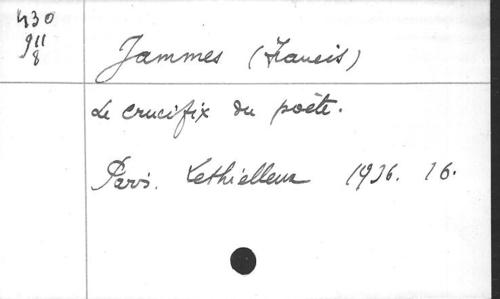 430
911
8
Jammes (Francis)
Le crucifix du poète.
Paris. Lethielleux 1936. 16.